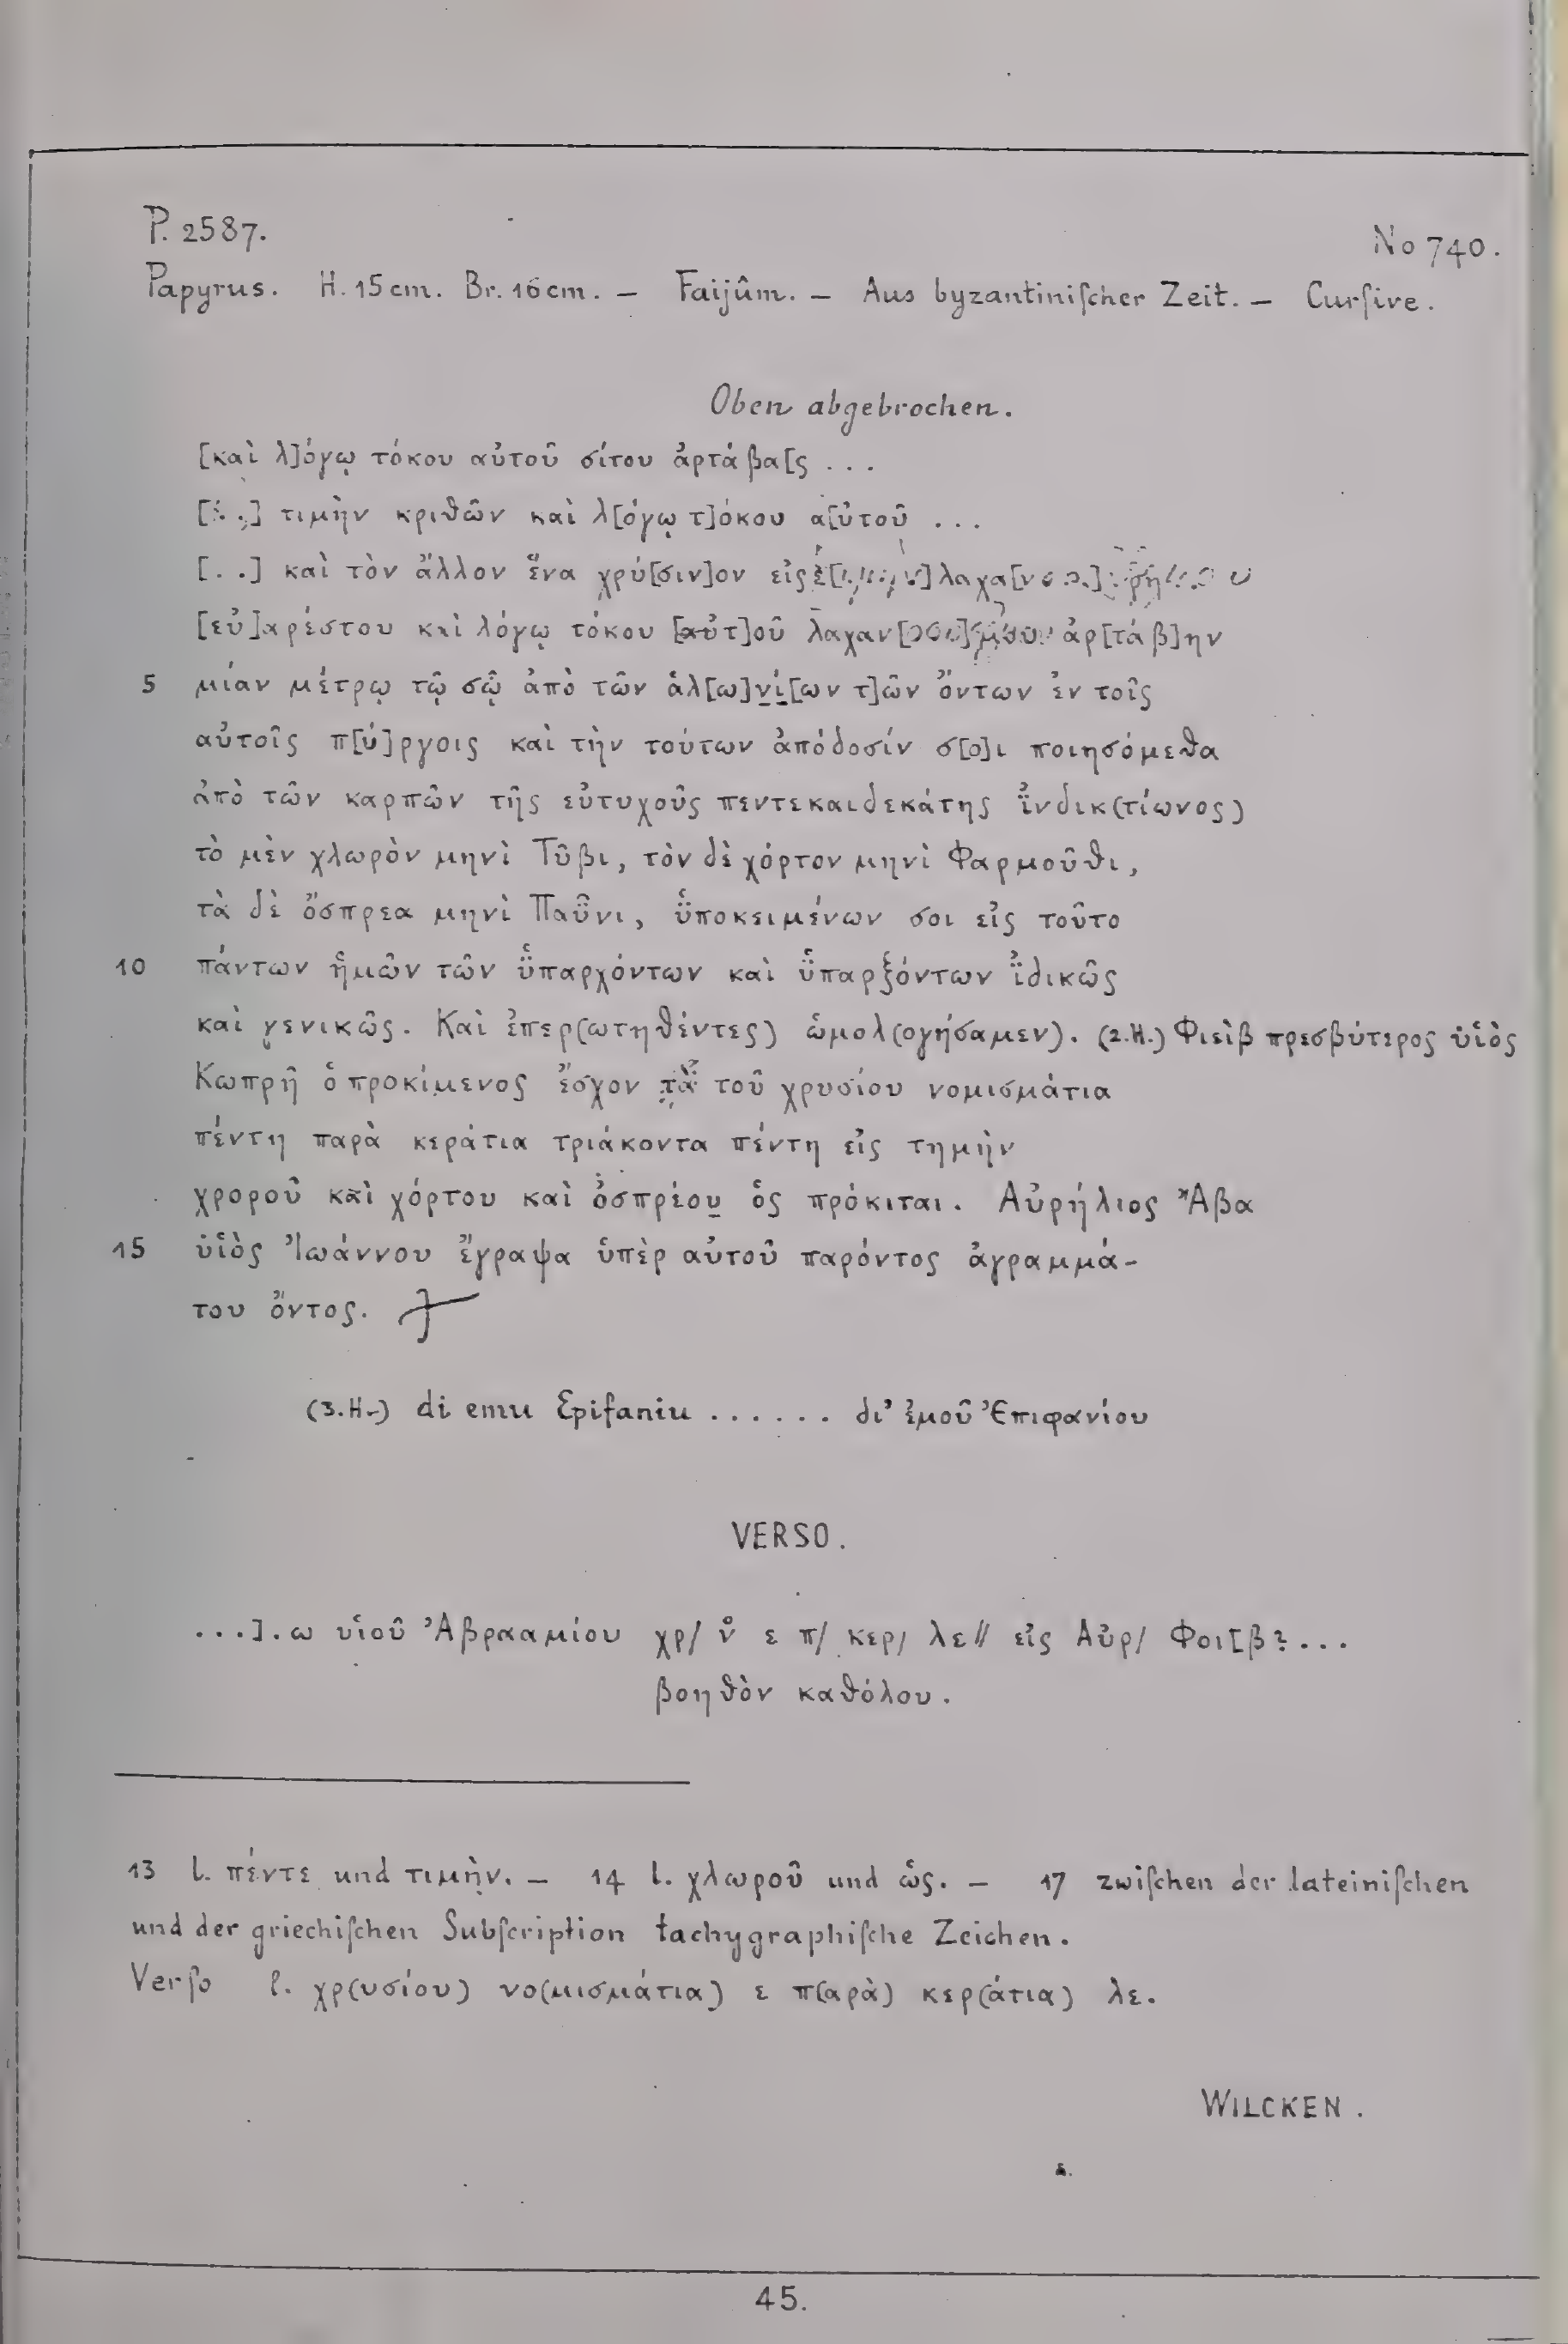 P. 2587.
No 740.
Papyrus. H. 15 cm. Br. 16 cm. – Faijûm. – Aus byzantiniſcher Zeit. – Curſive.
Oben abgebrochen.
[καὶ λ]όγῳ τόκου αὐτοῦ σίτου ἀρτάβα[ς ...
τιμὴν κριθῶν καὶ λ[όγῳ τ]όκου α[ὐτοῦ ...
[..] καὶ τὸν ἄλλον ἕνα χρύ[σιν]ον εἰς
[εὐ]αρέστου καὶ λόγῳ τόκου [αὐτ]οῦ ἀρ[τάβ]ην
5 μίαν μέτρῳ τῷ σῷ ἀπὸ τῶν ἁλ[ω]νί[ων τ]ῶν ὄντων ἐν τοῖς
αὐτοῖς π[ύ]ργοις καὶ τὴν τούτων ἀπόδοσίν σ[ο]ι ποιησόμεθα
ἀπὸ τῶν καρπῶν τῆς εὐτυχοῦς πεντεκαιδεκάτης ἰ̈νδικ(τίωνος)
τὸ μὲν χλωρὸν μηνὶ Τῦβι, τὸν δὲ χόρτον μηνὶ Φαρμοῦθι,
τὰ δὲ ὄσπρεα μηνὶ Παῧνι, ὑ̈ποκειμένων σοι εἰς τοῦτο
10 πάντων ἡμῶν τῶν ὑ̈παρχόντων καὶ ὑ̈παρξόντων ἰ̈δικῶς
καὶ γενικῶς. Καὶ ἐπερ(ωτηθέντες) ὡμολ(ογήσαμεν). (2.H.) Φιεὶβ πρεσβύτερος ὑἱὸς
Κωπρῆ ὁ προκίμενος ἔσχον τὰ τοῦ χρυσίου νομισμάτια
πέντη παρὰ κεράτια τριάκοντα πέντη εἰς τημὴν
χροροῦ καὶ χόρτου καὶ ὀσπρέου ὁς πρόκιται. Αὐρήλιος Ἄβα
15 ὑἱὸς Ἰωάννου ἔγραψα ὑπὲρ αὐτοῦ παρόντος ἀγραμμά-
του ὄντος.
(3.H.) di emu Epifaniu ...... δι’ ἐμοῦ Ἐπιφανίου
VERSO.
...].ω υἱοῦ Ἀβρααμίου χρ/ ν̊ ε π/ κερ/ λε// εἰς Αὐρ/ Φοι[β?...
βοηθὸν καθόλου.
13 l. πέντε und τιμὴν. – 14 l. χλωροῦ und ὡς. – 17 zwiſchen der lateiniſchen
und der griechiſchen Subſcription tachygraphiſche Zeichen.
Verſo l. χρ(υσίου) νο(μισμάτια) ε π(αρὰ) κερ(άτια) λε.
WILCKEN.
45.